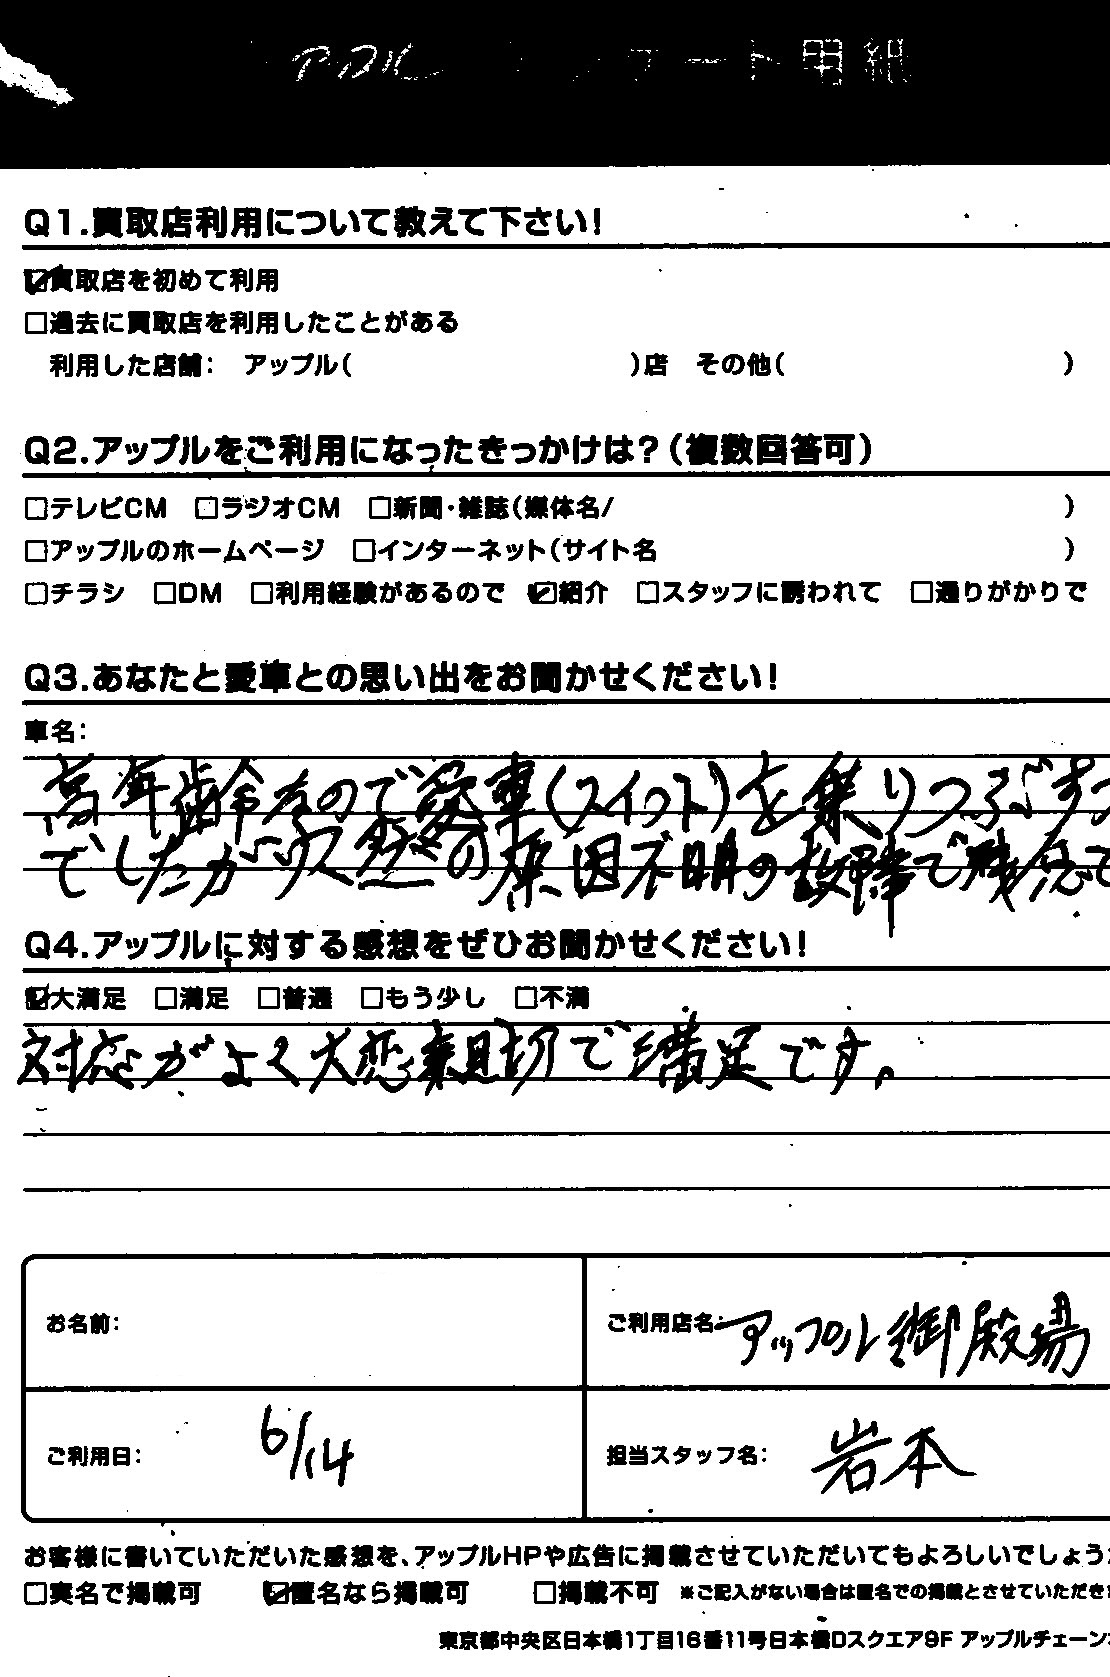 アップル アンケート用紙
Q1.買取店利用について教えて下さい!
☑買取店を初めて利用
□過去に買取店を利用したことがある
利用した店舗: アップル( )店 その他( )
Q2.アップルをご利用になったきっかけは?(複数回答可)
□テレビCM □ラジオCM □新聞・雑誌(媒体名/ )
□アップルのホームページ □インターネット(サイト名 )
□チラシ □DM □利用経験があるので ☑紹介 □スタッフに誘われて □通りがかりで
Q3.あなたと愛車との思い出をお聞かせください!
車名:
高年齢なので愛車(スイフト)を乗りつぶすつ
でしたが突然の原因不明の故障で残念で
Q4.アップルに対する感想をぜひお聞かせください!
☑大満足 □満足 □普通 □もう少し □不満
対応がよく大変親切で満足です。
お名前:
ご利用店名: アップル御殿場
ご利用日: 6/14
担当スタッフ名: 岩本
お客様に書いていただいた感想を、アップルHPや広告に掲載させていただいてもよろしいでしょう
□実名で掲載可 ☑匿名なら掲載可 □掲載不可 ※ご記入がない場合は匿名での掲載とさせていただき
東京都中央区日本橋1丁目16番11号日本橋Dスクエア9F アップルチェーン